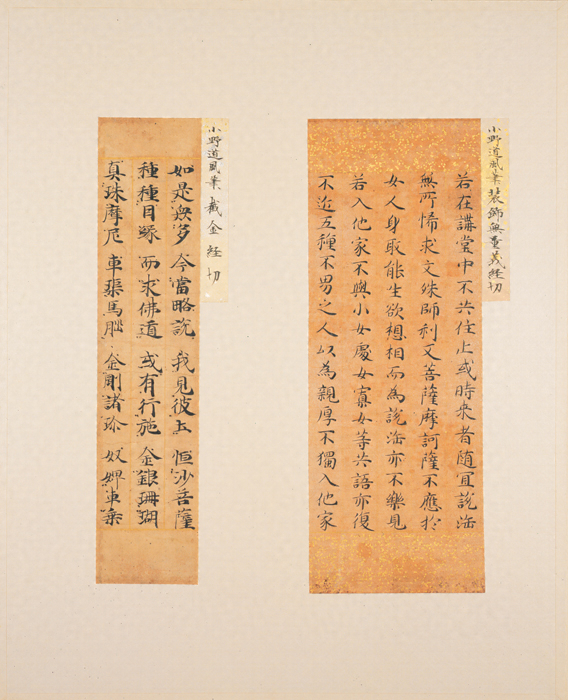 小野道風筆 装飾無量義経切
若在講堂中不共住止或時来者随宜説法
無所悕求文殊師利又菩薩摩訶薩不應於
女人身取能生欲想相而為說法亦不樂見
若入他家不與小女處女寡女等共語亦復
不近五種不男之人以為親厚不獨入他家
小野道風筆 截金 経切
如是無多 今當略說 我見彼土 恒沙菩薩
種種因緣 而求佛道 或有行施 金銀珊瑚
真珠摩尼 車璖馬瑙 金剛諸珍 奴婢車乘